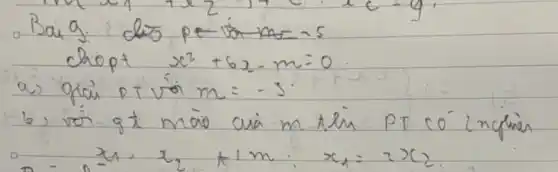 Bài 9: cho pt với m = -5
cho pt x² + 6x - m = 0
a) giải PT với m = -5
b) với gt nào của m thì PT có 2 nghiệm
x₁, x₂ t/m: x₁ = 2x₂.